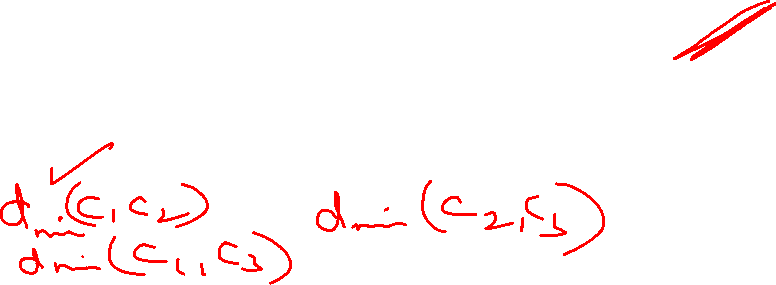 dmin(C1C2) dmin(C2,C3)
dmin(C1,C3)